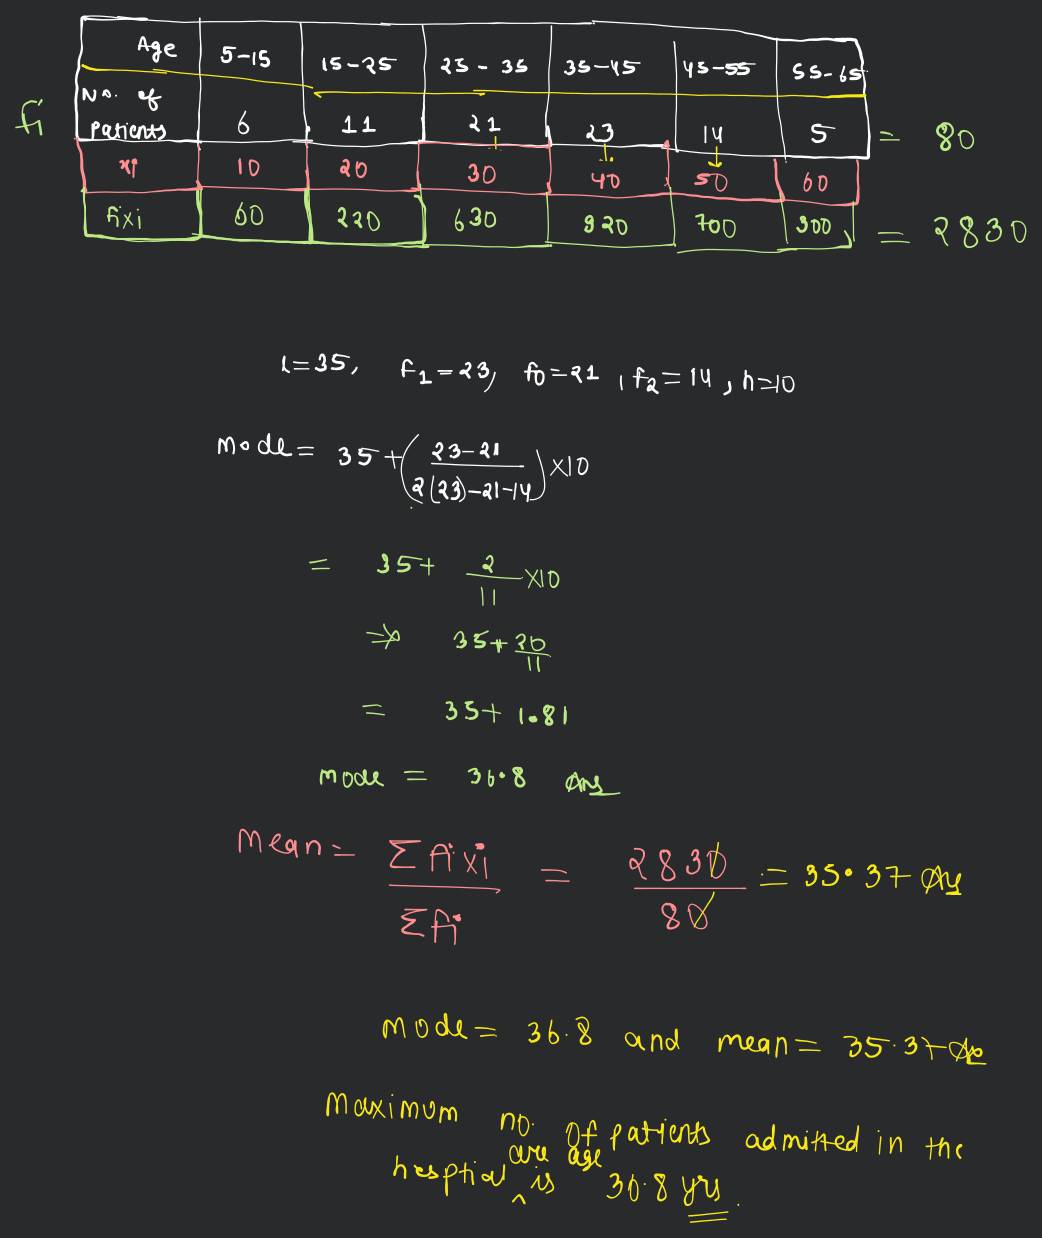 Age 5-15 15-25 25-35 35-45 45-55 55-65
fi No. of Patients 6 11 21 23 14 5 = 80
xi 10 20 30 40 50 60
fixi 60 220 630 920 700 300 = 2830
l=35, f1=23, f0=21, f2=14, h=10
Mode= 35+(23-21/2(23)-21-14)×10
= 35+ 2/11 ×10
⇒ 35+20/11
= 35+1.81
Mode = 36.8 Ans
Mean= Σfixi/Σfi = 2830/80 = 35.37 Ans
Mode= 36.8 and mean= 35.37 Ans
Maximum no. of patients admitted in the
hosptial are age is 36.8 yrs.